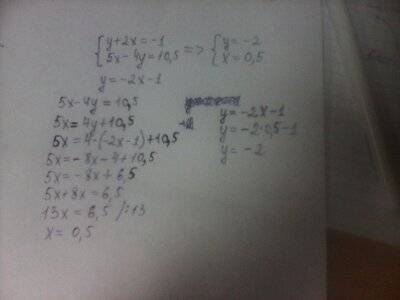 { y+2x=-1
5x-4y=10,5 => { y=-2
x=0,5
y=-2x-1
5x-4y=10,5
5x=4y+10,5
5x=4·(-2x-1)+10,5
5x=-8x-4+10,5
5x=-8x+6,5
5x+8x=6,5
13x=6,5 /:13
x=0,5
y=-2x-1
y=-2·0,5-1
y=-2